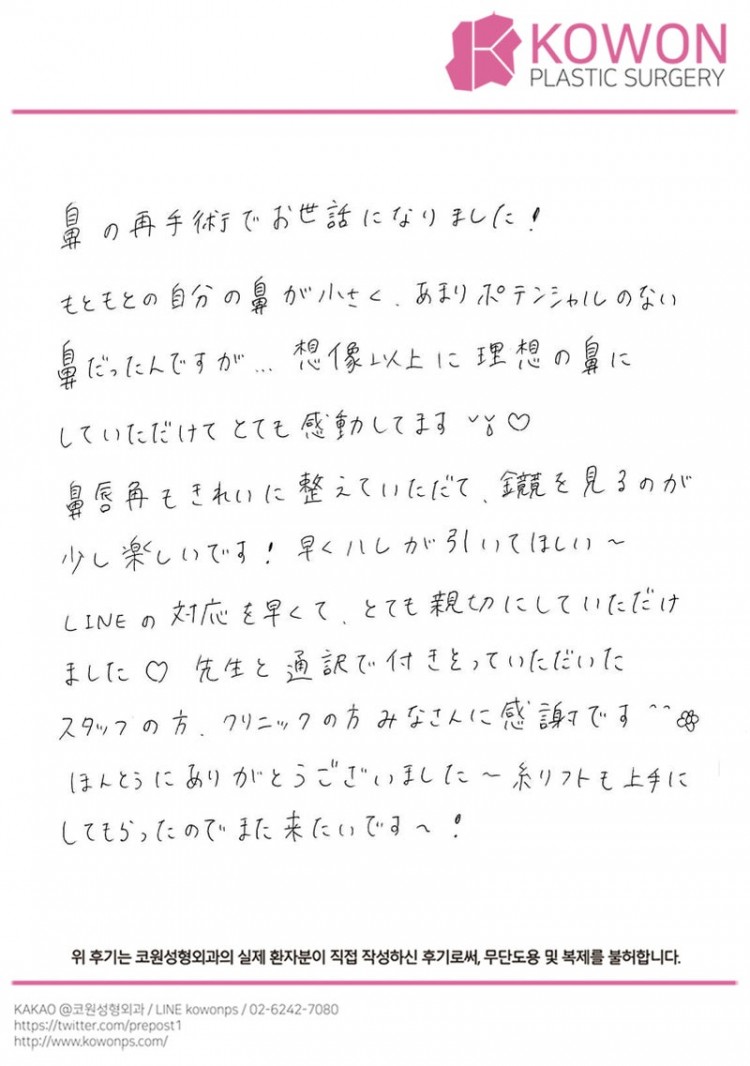 KOWON
PLASTIC SURGERY
鼻の再手術でお世話になりました!
もともとの自分の鼻が小さく、あまりポテンシャルのない
鼻だったんですが... 想像以上に理想の鼻に
していただけてとても感動してます ♡
鼻唇角もきれいに整えていただて、鏡を見るのが
少し楽しいです! 早くハレが引いてほしい~
LINEの対応を早くて、とても親切にしていただけ
ました♡ 先生と通訳で付きとっていただいた
スタッフの方、クリニックの方みなさんに感謝です^^
ほんとうにありがとうございました~糸リフトも上手に
してもらったのでまた来たいです~!
위 후기는 코원성형외과의 실제 환자분이 직접 작성하신 후기로써, 무단도용 및 복제를 불허합니다.
KAKAO @코원성형외과 / LINE kowonps / 02-6242-7080
https://twitter.com/prepost1
http://www.kowonps.com/